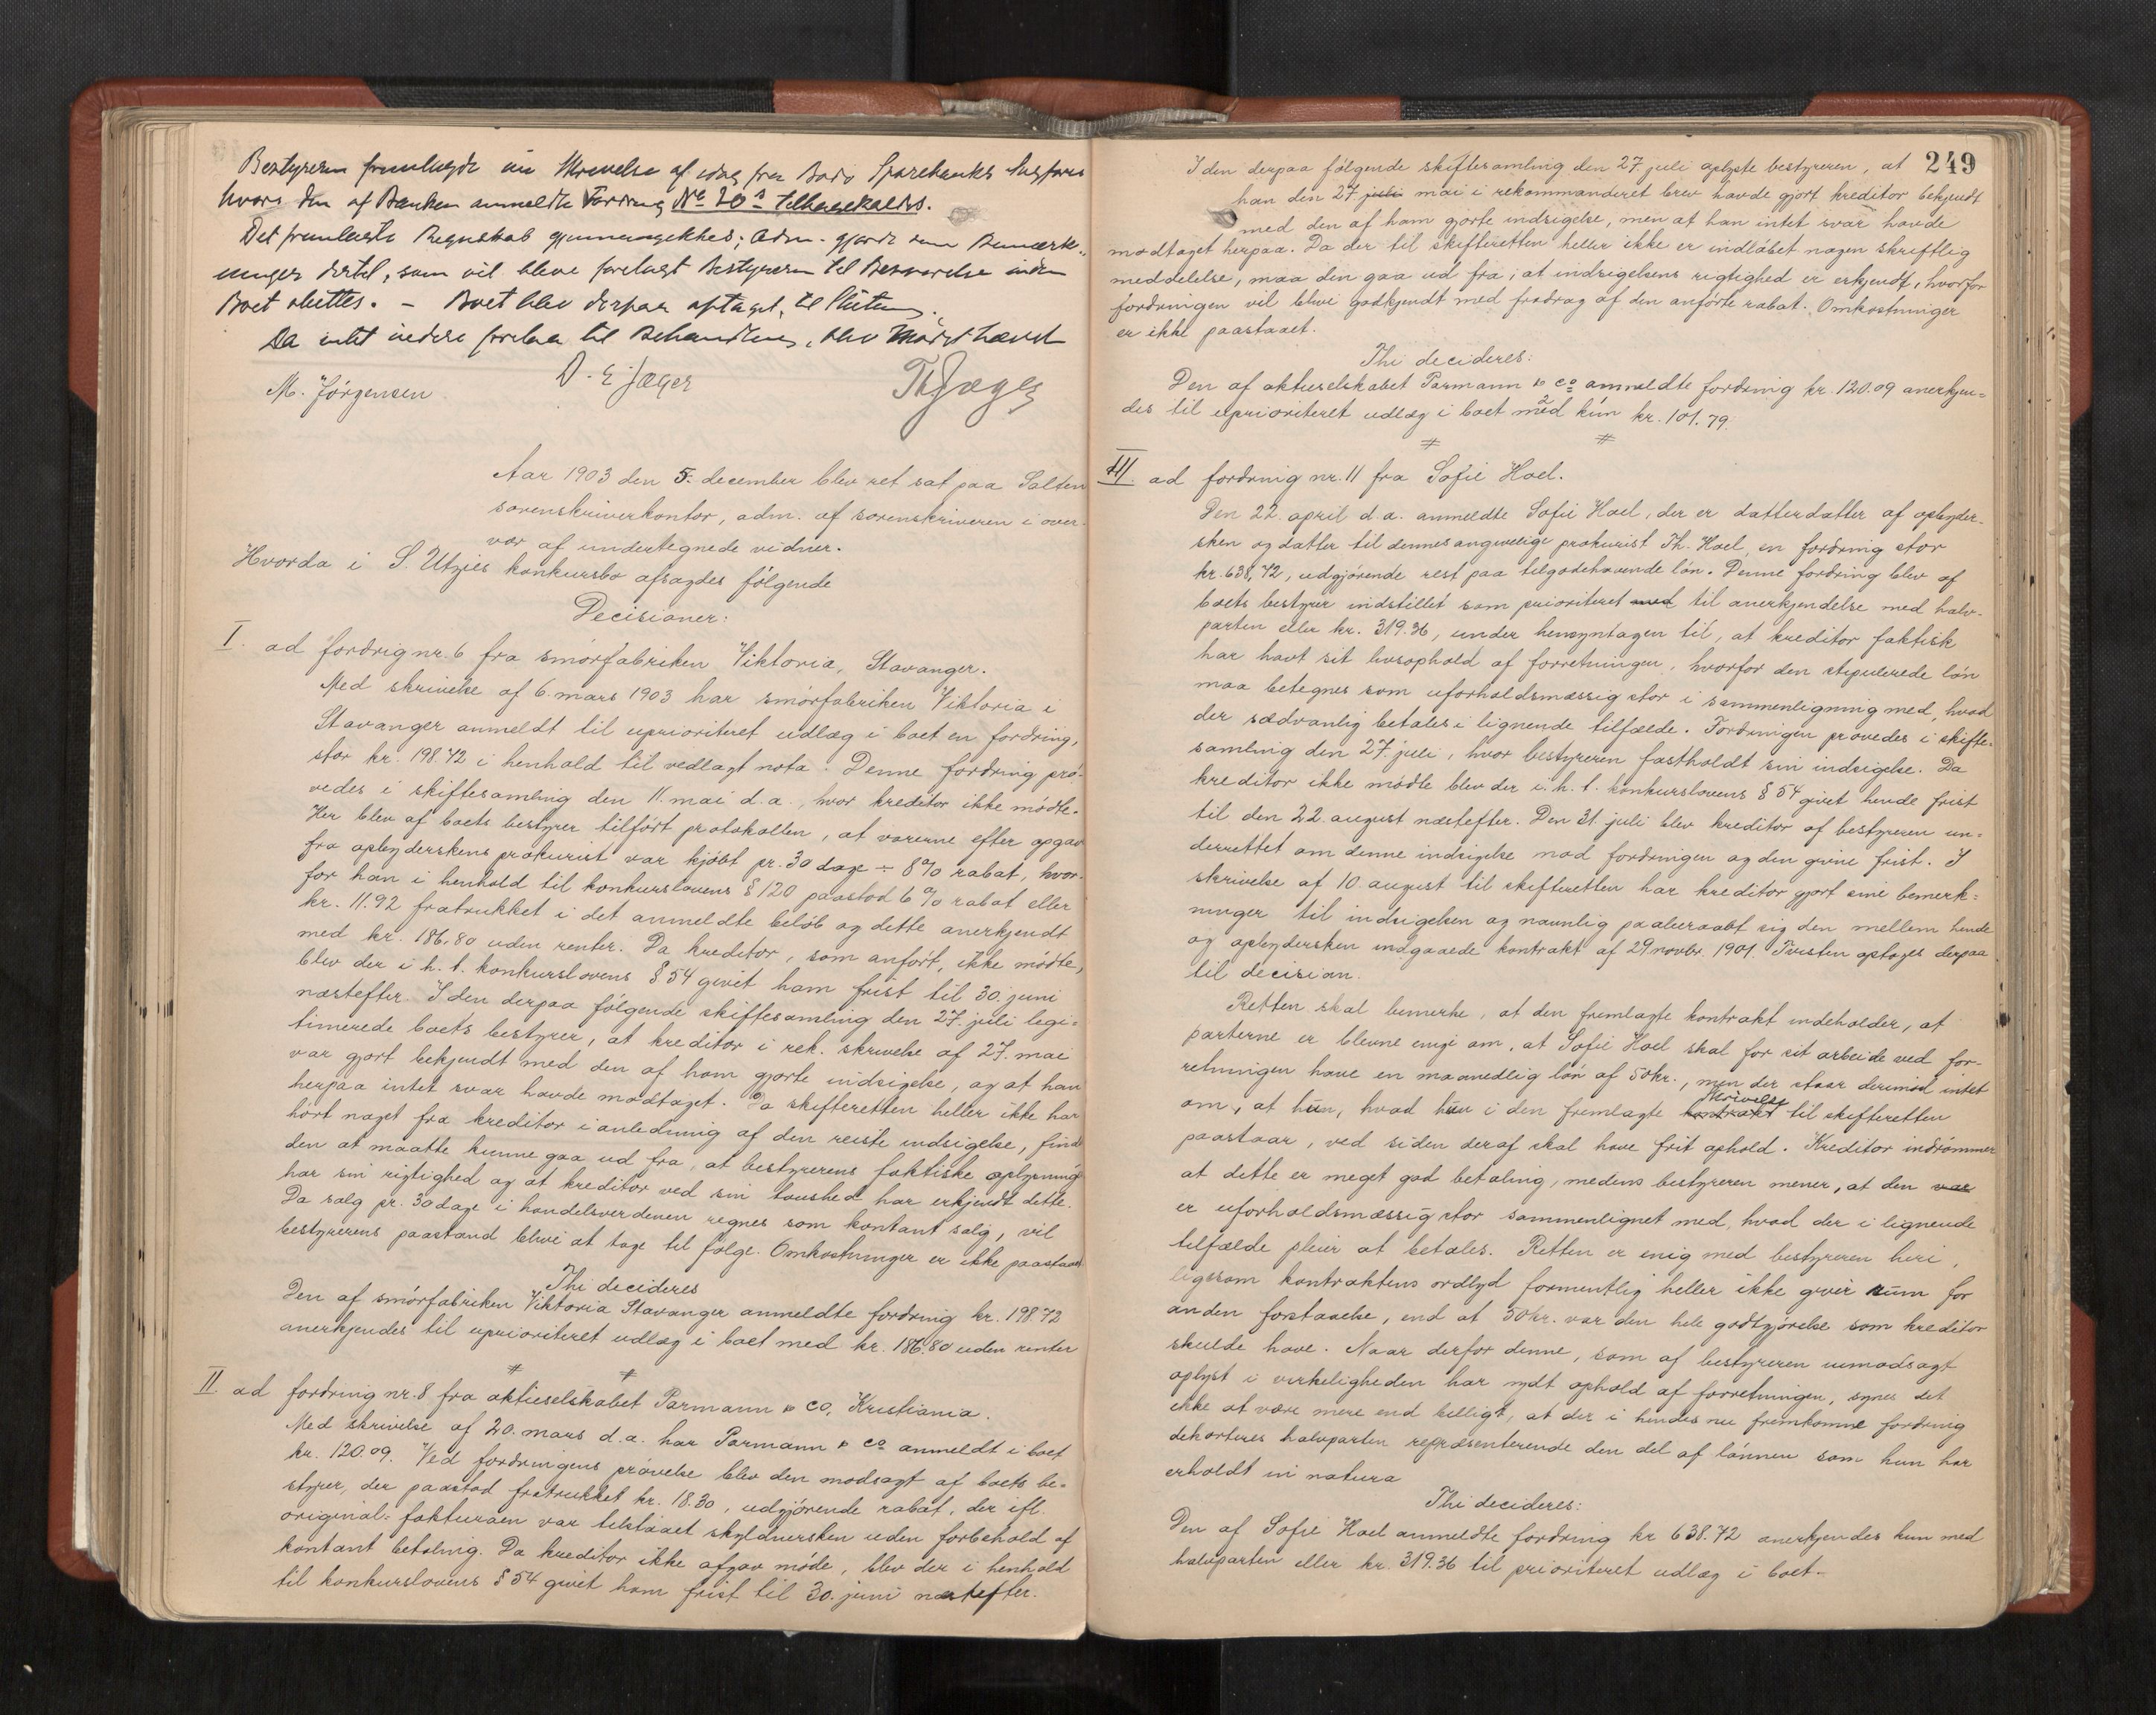 Bestyreren fremlagde en Skrivelse af idag fra Bodø Sparebanks Sagfører
hvori den af Banken anmeldte Fordring No 20 a tilbagekaldes.
Det fremlagte Regnskab gjennemgikkes; Adm. gjorde sine Bemærk-
ninger dertil, som vil blive forelagt Bestyreren til Besvarelse inden
Boet sluttes. – Boet blev derpaa optaget til Slutning.
Da intet videre forelaa til Behandling, blev Mødet hævet
M. Jörgensen D. E. Jæger Th Jæger
Aar 1903 den 5. december blev ret sat paa Salten
sorenskriverkontor, adm. af sorenskriveren i over-
vær af undertegnede vidner.
Hvorda i S. Utzies konkursbo afsagdes fölgende
Decisioner:
I. ad fordrig nr. 6 fra smörfabriken Viktoria, Stavanger.
Med skrivelse af 6. mars 1903 har smörfabriken Viktoria i
Stavanger anmeldt til uprioriteret udlæg i boet en fordring,
stor kr. 198.72 i henhold til vedlagt nota. Denne fordring prö-
vedes i skiftesamling den 11. mai d.a., hvor kreditor ikke mödte.
Her blev af boets bestyrer tilfört protokollen, at varerne efter opgav
fra opbyderskens prokurist var kjöbt pr. 30 dage ÷ 8% rabat, hvor-
for han i henhold til konkurslovens § 120 paastod 6% rabat eller
kr. 11.92 fratrukket i det anmeldte belöb og dette anerkjendt
med kr. 186.80 uden renter. Da kreditor, som anfört, ikke mödte,
blev der i h. t. konkurslovens § 54 givet ham frist til 30. juni
næstefter. I den derpaa fölgende skiftesamling den 27. juli legi-
timerede boets bestyrer, at kreditor i rek. skrivelse af 27. mai
var gjort bekjendt med den af ham gjorte indsigelse, og at han
herpaa intet svar havde modtaget. Da skifteretten heller ikke har
hört noget fra kreditor i anledning af den reiste indsigelse, find
den at maatte kunne gaa ud fra, at bestyrerens faktiske oplysning
har sin rigtighed og at kreditor ved sin taushed har erkjendt dette.
Da salg pr. 30 dage i handelsverdenen regnes som kontant salg, vil
bestyrerens paastand blive at tage til fölge. Omkostninger er ikke paastaaet
Thi decideres
Den af smörfabriken Viktoria Stavanger anmeldte fordring kr. 198.72
anerkjendes til uprioriteret udlæg i boet med kr. 186.80 uden renter
# #
II ad fordring nr. 8 fra aktieselskabet Parmann & co, Kristiania.
Med skrivelse af 20. mars d.a. har Parmann & co anmeldt i boet
kr. 120.09. Ved fordringens prövelse blev den modsagt af boets be-
styrer, der paastod fratrukket kr. 18.30, udgjörende rabat, der ifl.
original-fakturaen var tilstaaet skyldnersken uden forbehold af
kontant betaling. Da kreditor ikke afgav möde, blev der i henhold
til konkurslovens § 54 givet ham frist til 30. juni næstefter.
249
I den derpaa fölgende skiftesamling den 27. juli oplyste bestyreren, at
han den 27. juli mai i rekommanderet brev havde gjort kreditor bekjendt
med den af ham gjorte indsigelse, men at han intet svar havde
modtaget herpaa. Da der til skifteretten heller ikke er indlöbet nogen skriftlig
meddelelse, maa den gaa ud fra, at indsigelsens rigtighed er erkjendt, hvorfor
fordringen vil blive godkjendt med fradrag af den anförte rabat. Omkostninger
er ikke paastaaet.
Thi decideres:
Den af aktieselskabet Parmann & co anmeldte fordring kr. 120.09 anerkjen-
des til uprioriteret udlæg i boet med kun kr. 101.79.
# #
III. ad fordring nr. 11 fra Sofie Hoel.
Den 22. april d.a. anmeldte Sofie Hoel, der er datterdatter af opbyder-
sken og datter til dennes angivelige prokurist Th. Hoel, en fordring stor
kr. 638,72, udgjörende rest paa tilgodehavende lön. Denne fordring blev af
boets bestyrer indstillet som prioriteret med til anerkjendelse med halv-
parten eller kr. 319.36, under hensyntagen til, at kreditor faktisk
har havt sit livsophold af forretningen, hvorfor den stipulerede lön
maa betegnes som uforholdsmæssig stor i sammenligning med, hvad
der sædvanlig betales i lignende tilfælde. Fordringen prövedes i skifte-
samling den 27. juli, hvor bestyreren fastholdt sin indsigelse. Da
kreditor ikke mödte blev der i. h. t. konkurslovens § 54 givet hende frist
til den 22. august næstefter. Den 31. juli blev kreditor af bestyreren un-
derrettet om denne indsigelse mod fordringen og den givne frist. I
skrivelse af 10. august til skifteretten har kreditor gjort sine bemerk-
ninger til indsigelsen og navnlig paaberaabt sig den mellem hende
og opbydersken indgaaede kontrakt af 29 novbr. 1901. Tvisten optoges derpaa
til decision.
Retten skal bemerke, at den fremlagte kontrakt indeholder, at
parterne er blevne enige om, at Sofie Hoel skal for sit arbeide ved for-
retningen have en maanedlig lön af 50 kr., men der staar derimod intet
om, at hun, hvad hun i den fremlagte kontrakt skrivelse til skifteretten
paastaar, ved siden deraf skal have frit ophold. Kreditor indrömmer
at dette er meget god betaling, medens bestyreren mener, at den var
er uforholdsmæssig stor sammenlignet med, hvad der i lignende
tilfælde pleier at betales. Retten er enig med bestyreren heri,
ligesom kontraktens ordlyd formentlig heller ikke giver rum for
anden forstaaelse, end at 50 kr. var den hele godtgjörelse som kreditor
skulde have. Naar derfor denne, som af bestyreren umodsagt
oplyst i virkeligheden har nydt ophold af forretningen, synes det
ikke at være mere end billigt, at der i hendes nu fremkomne fordring
dekorteres halvparten repræsenterende den del af lönnen som hun har
erholdt in natura
Thi decideres:
Den af Sofie Hoel anmeldte fordring kr 638.72 anerkjendes kun med
halvparten eller kr. 319.36 til prioriteret udlæg i boet.